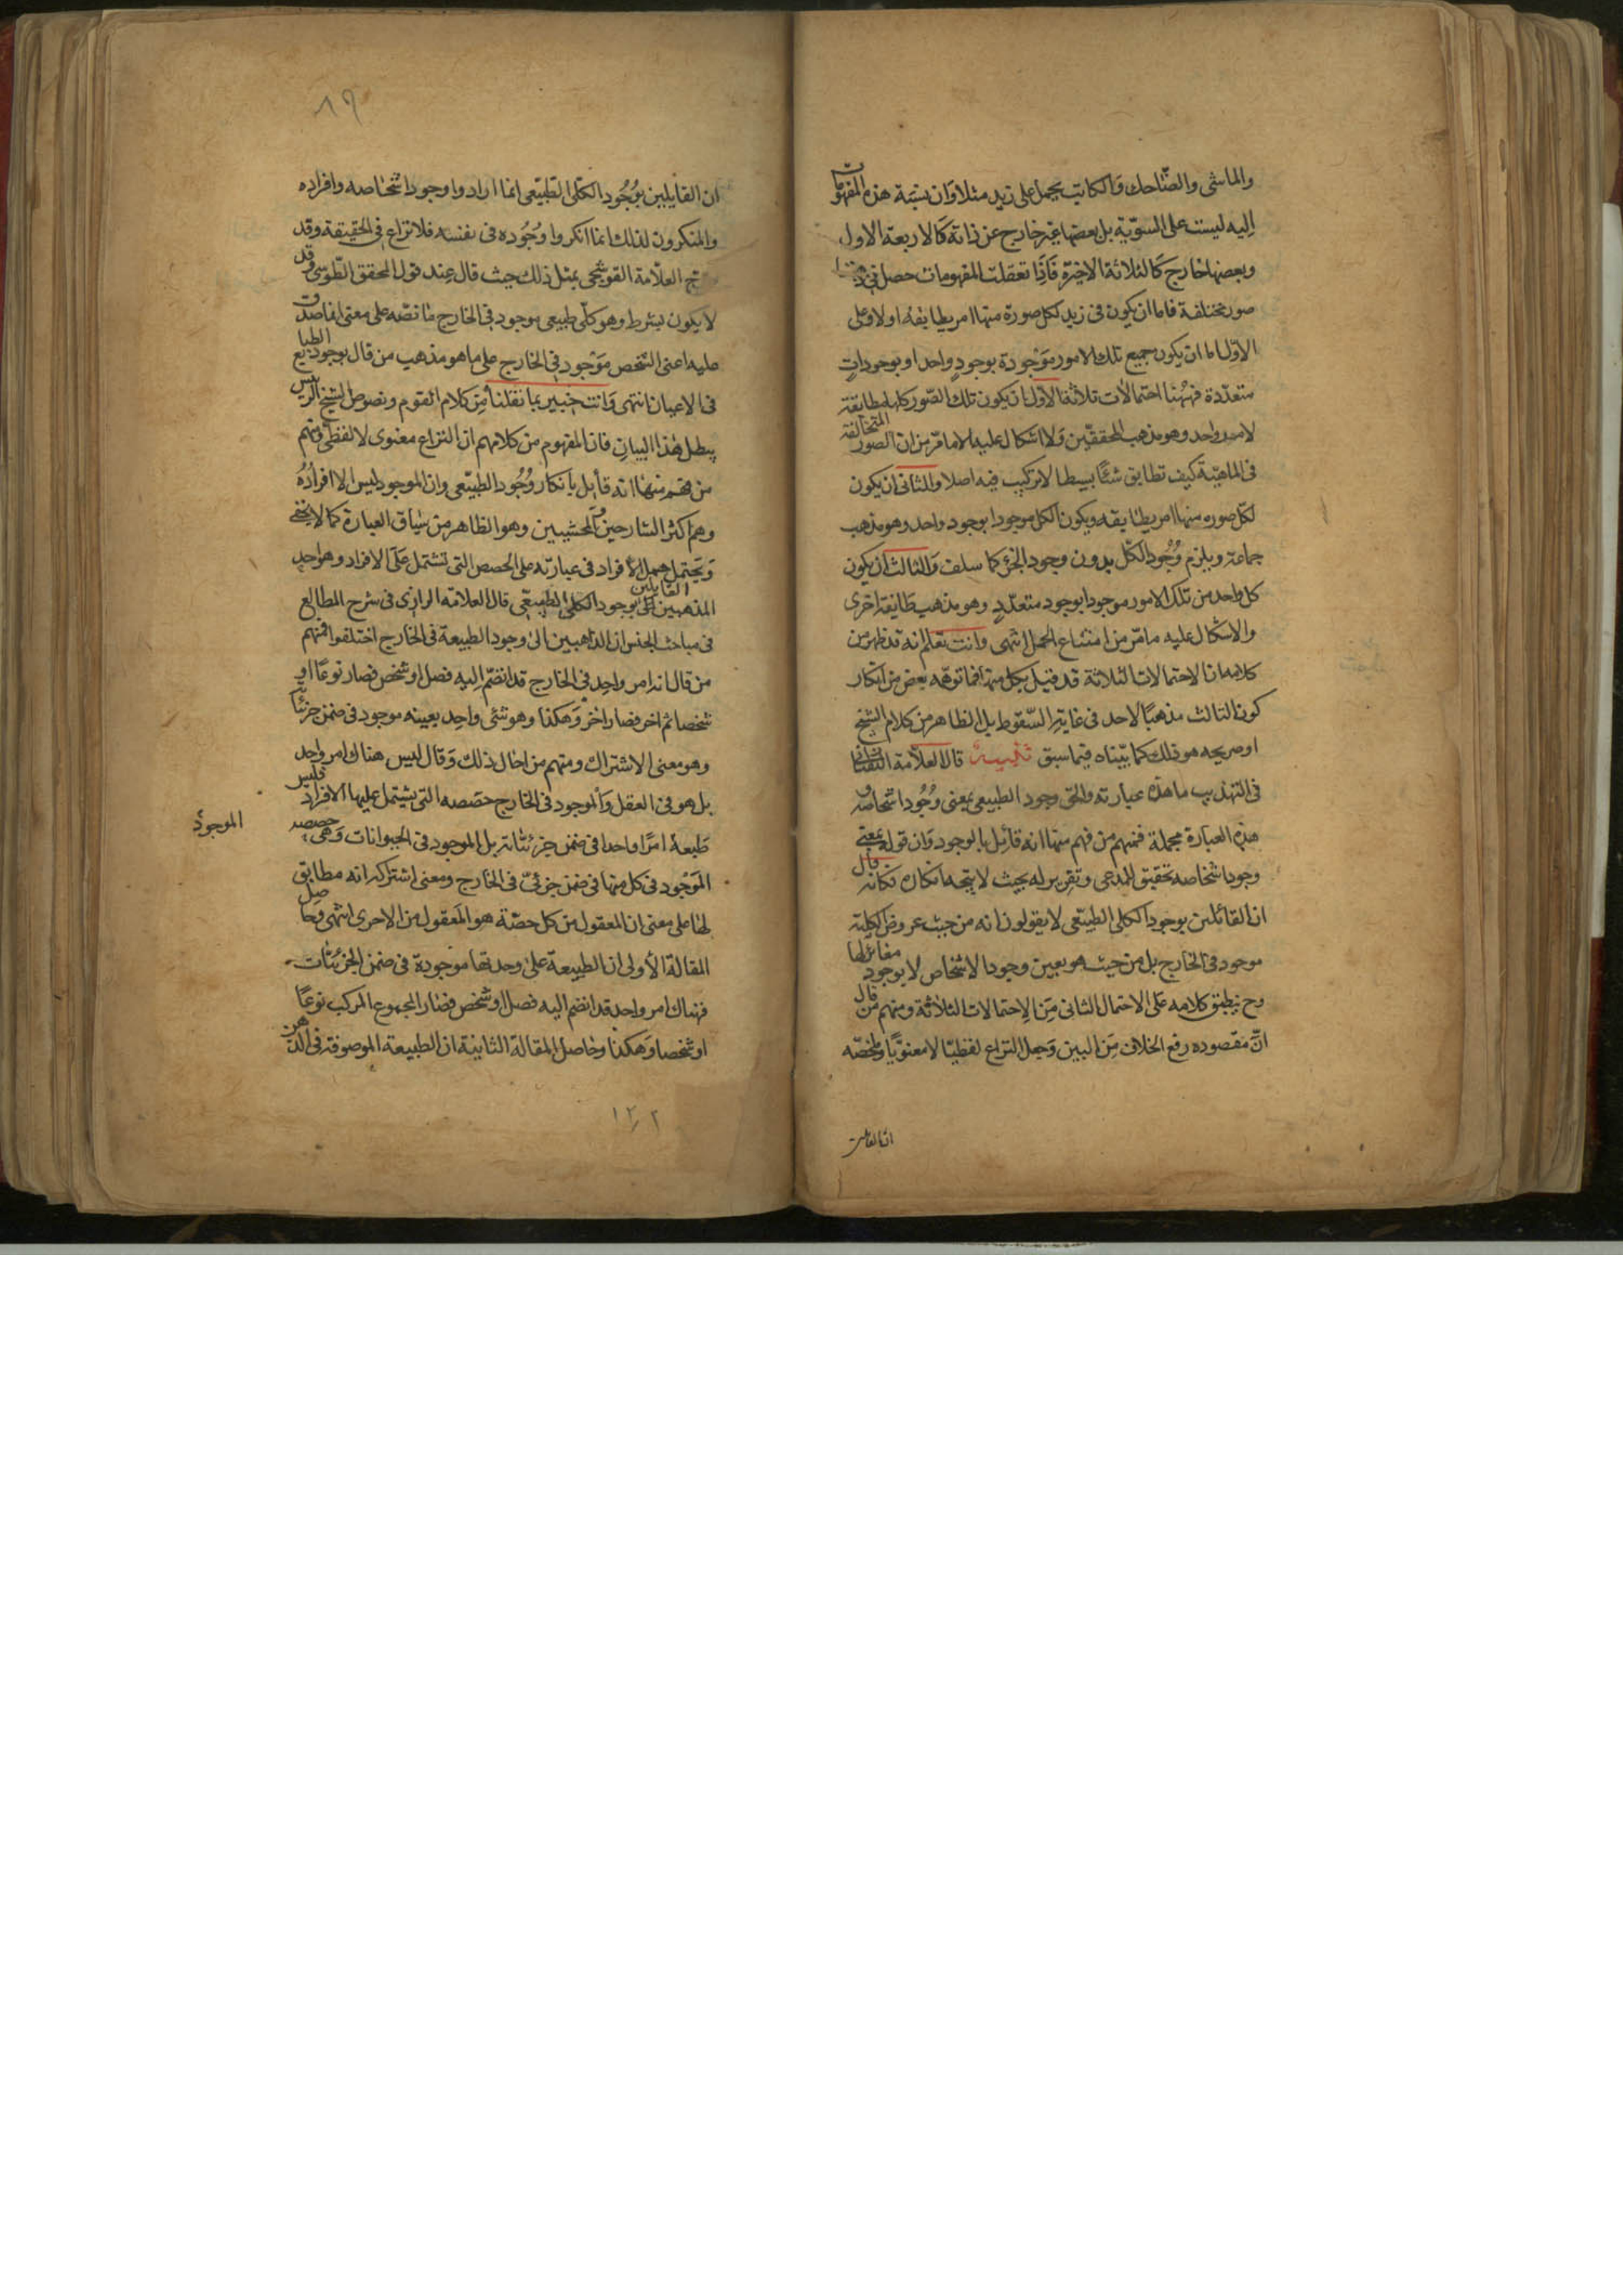 والماشى والضّاحك والكاتب يحمل على زيد مثلا وان نسبة هذه المفهومات
اليه ليست على السويّة بل بعضها غير خارج عن ذاته كالاربعة الاول
وبعضها خارج كالثلاثة الاخيرة فاذا تعقلت المفهومات حصل فى
صور مختلفة فاما ان يكون فى زيد لكل صورة منها امر يطابقه اولا وعلى
الاوّل اما ان يكون جميع تلك الامور موجودة بوجود واحد او بوجودات
متعدّدة فههنا احتمالات ثلاثة الاول ان يكون تلك الصّور كلها مطابقة
لامر واحد وهو مذهب المحققين ولا اشكال عليه الا ما مرّ من ان الصور المتخالفة
فى الماهيّة كيف تطابق شئا بسيطا لا تركيب فيه اصلا والثانى ان يكون
لكل صورة منها امر يطابقه ويكون الكل موجودا بوجود واحد وهو مذهب
جماعة ويلزم وُجُود الكل بدون وجود الجزء كما سلف والثالث ان يكون
كل واحد من تلك الامور موجودا بوجود متعدّد وهو مذهب طائفة اخرى
والاشكال عليه ما مرّ من امتناع الحمل انتهى وانت تعلم انه قد ظهر من
كلامه ان الاحتمالات الثلاثة قد قيل بكل منها فما توهّمه بعض من انكار
كون الثالث مذهبًا لاحد فى غاية السّقوط بل الظاهر من كلام الشيخ
او صريحه هو ذلك كما بيّناه فيما سبق تنبيه قال العلاّمة التفتازانى
فى التهذيب ما هذه عبارته والحق وجود الطبيعى بمعنى وُجُود اشخاصه و
هذه العبارة مجملة فمنهم من فهم منها انه قائل بالوجود وان قوله بمعنى
وجود اشخاصه تحقيق للمدعى وتقرير له بحيث لا يتجه انكاره فكانه قال
ان القائلين بوجود الكلى الطبيعى لا يقولون انه من حيث عروض الكلية
موجود فى الخارج بل من حيث هو بعين وجود الاشخاص لا بوجود مغاير لها
وح ينطبق كلامه على الاحتمال الثانى من الاحتمالات الثلاثة ومنهم من قال
انّ مقصوده رفع الخلاف من البين وجعل النزاع لفظيّا لا معنويًّا وملخصه
ان القايلين
٨٩
ان القايلين بوُجُود الكلى الطبيعى انما ارادوا وجود اشخاصه وافراده
والمنكرون لذلك انما انكروا وُجُوده فى نفسه فلا نزاع فى الحقيقة وقد
العلاّمة القوشجى بمثل ذلك حيث قال عند قول المحقق الطّوسى وقد
لا يكون بشرط وهو كلى طبيعى موجود فى الخارج ما نصّه على معنى ان ما صدق
عليه اعنى الشخص موجود فى الخارج على ما هو مذهب من قال بوجود الطبايع
فى الاعيان انتهى وانت خبير بما نقلنا من كلام القوم ونصوص الشيخ الرئيس
يبطل هذا البيان فان المفهوم من كلامهم ان النزاع معنوى لا لفظى ومنهم
من فهم منها انه قائل بانكار وُجُود الطبيعى وان الموجود ليس الا افراده
وهم اكثر الشارحين والمحشيين وهو الظاهر من سياق العبارة كما لا يخفى
ويحتمل حمل الافراد فى عبارته على الحصص التى تشتمل على الافراد وهو احد
المذهبين للقايلين بوجود الكلى الطبيعى قال العلامة الرازى فى شرح المطالع
فى مباحث الجنس ان الذاهبين الى وجود الطبيعة فى الخارج اختلفوا فمنهم
من قال انه امر واحد فى الخارج قد انضم اليه فصل او شخص فصار نوعًا او
شخصا ثم اخر فصار اخر وهكذا وهو شئ واحد بعينه موجود فى ضمن جزئيا
وهو معنى الاشتراك ومنهم من احال ذلك وقال ليس هناك امر واحد
بل هو فى العقل والموجود فى الخارج حصصه التى يشتمل عليها الافراد فليس
طبعة امرًا واحدا فى ضمن جزئياته بل الموجود فى الحيوانات وهى حصصه
الموجود
الموجود فى كل منها فى ضمن جزئىّ فى الخارج ومعنى اشتراكه انه مطابق
لها على معنى ان المعقول من كل حصّة هو المعقول من الاخرى انتهى وحاصل
المقالة الأولى ان الطبيعة على وحدتها موجودة فى ضمن الجزئيات
فهناك امر واحد قد انضم اليه فصل او شخص فصار المجموع المركب نوعًا
او شخصا وهكذا وحاصل المقالة الثانية ان الطبيعة الموصوفة فى الذهن